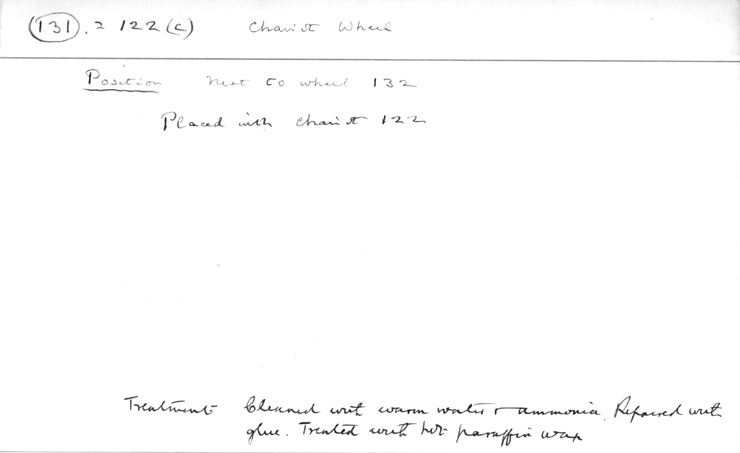 (131). = 122(c) Chariot Wheel
Position Next to wheel 132
Placed with chariot 122
Treatment Cleaned with warm water + ammonia. Repaired with
glue. Treated with hot paraffin wax